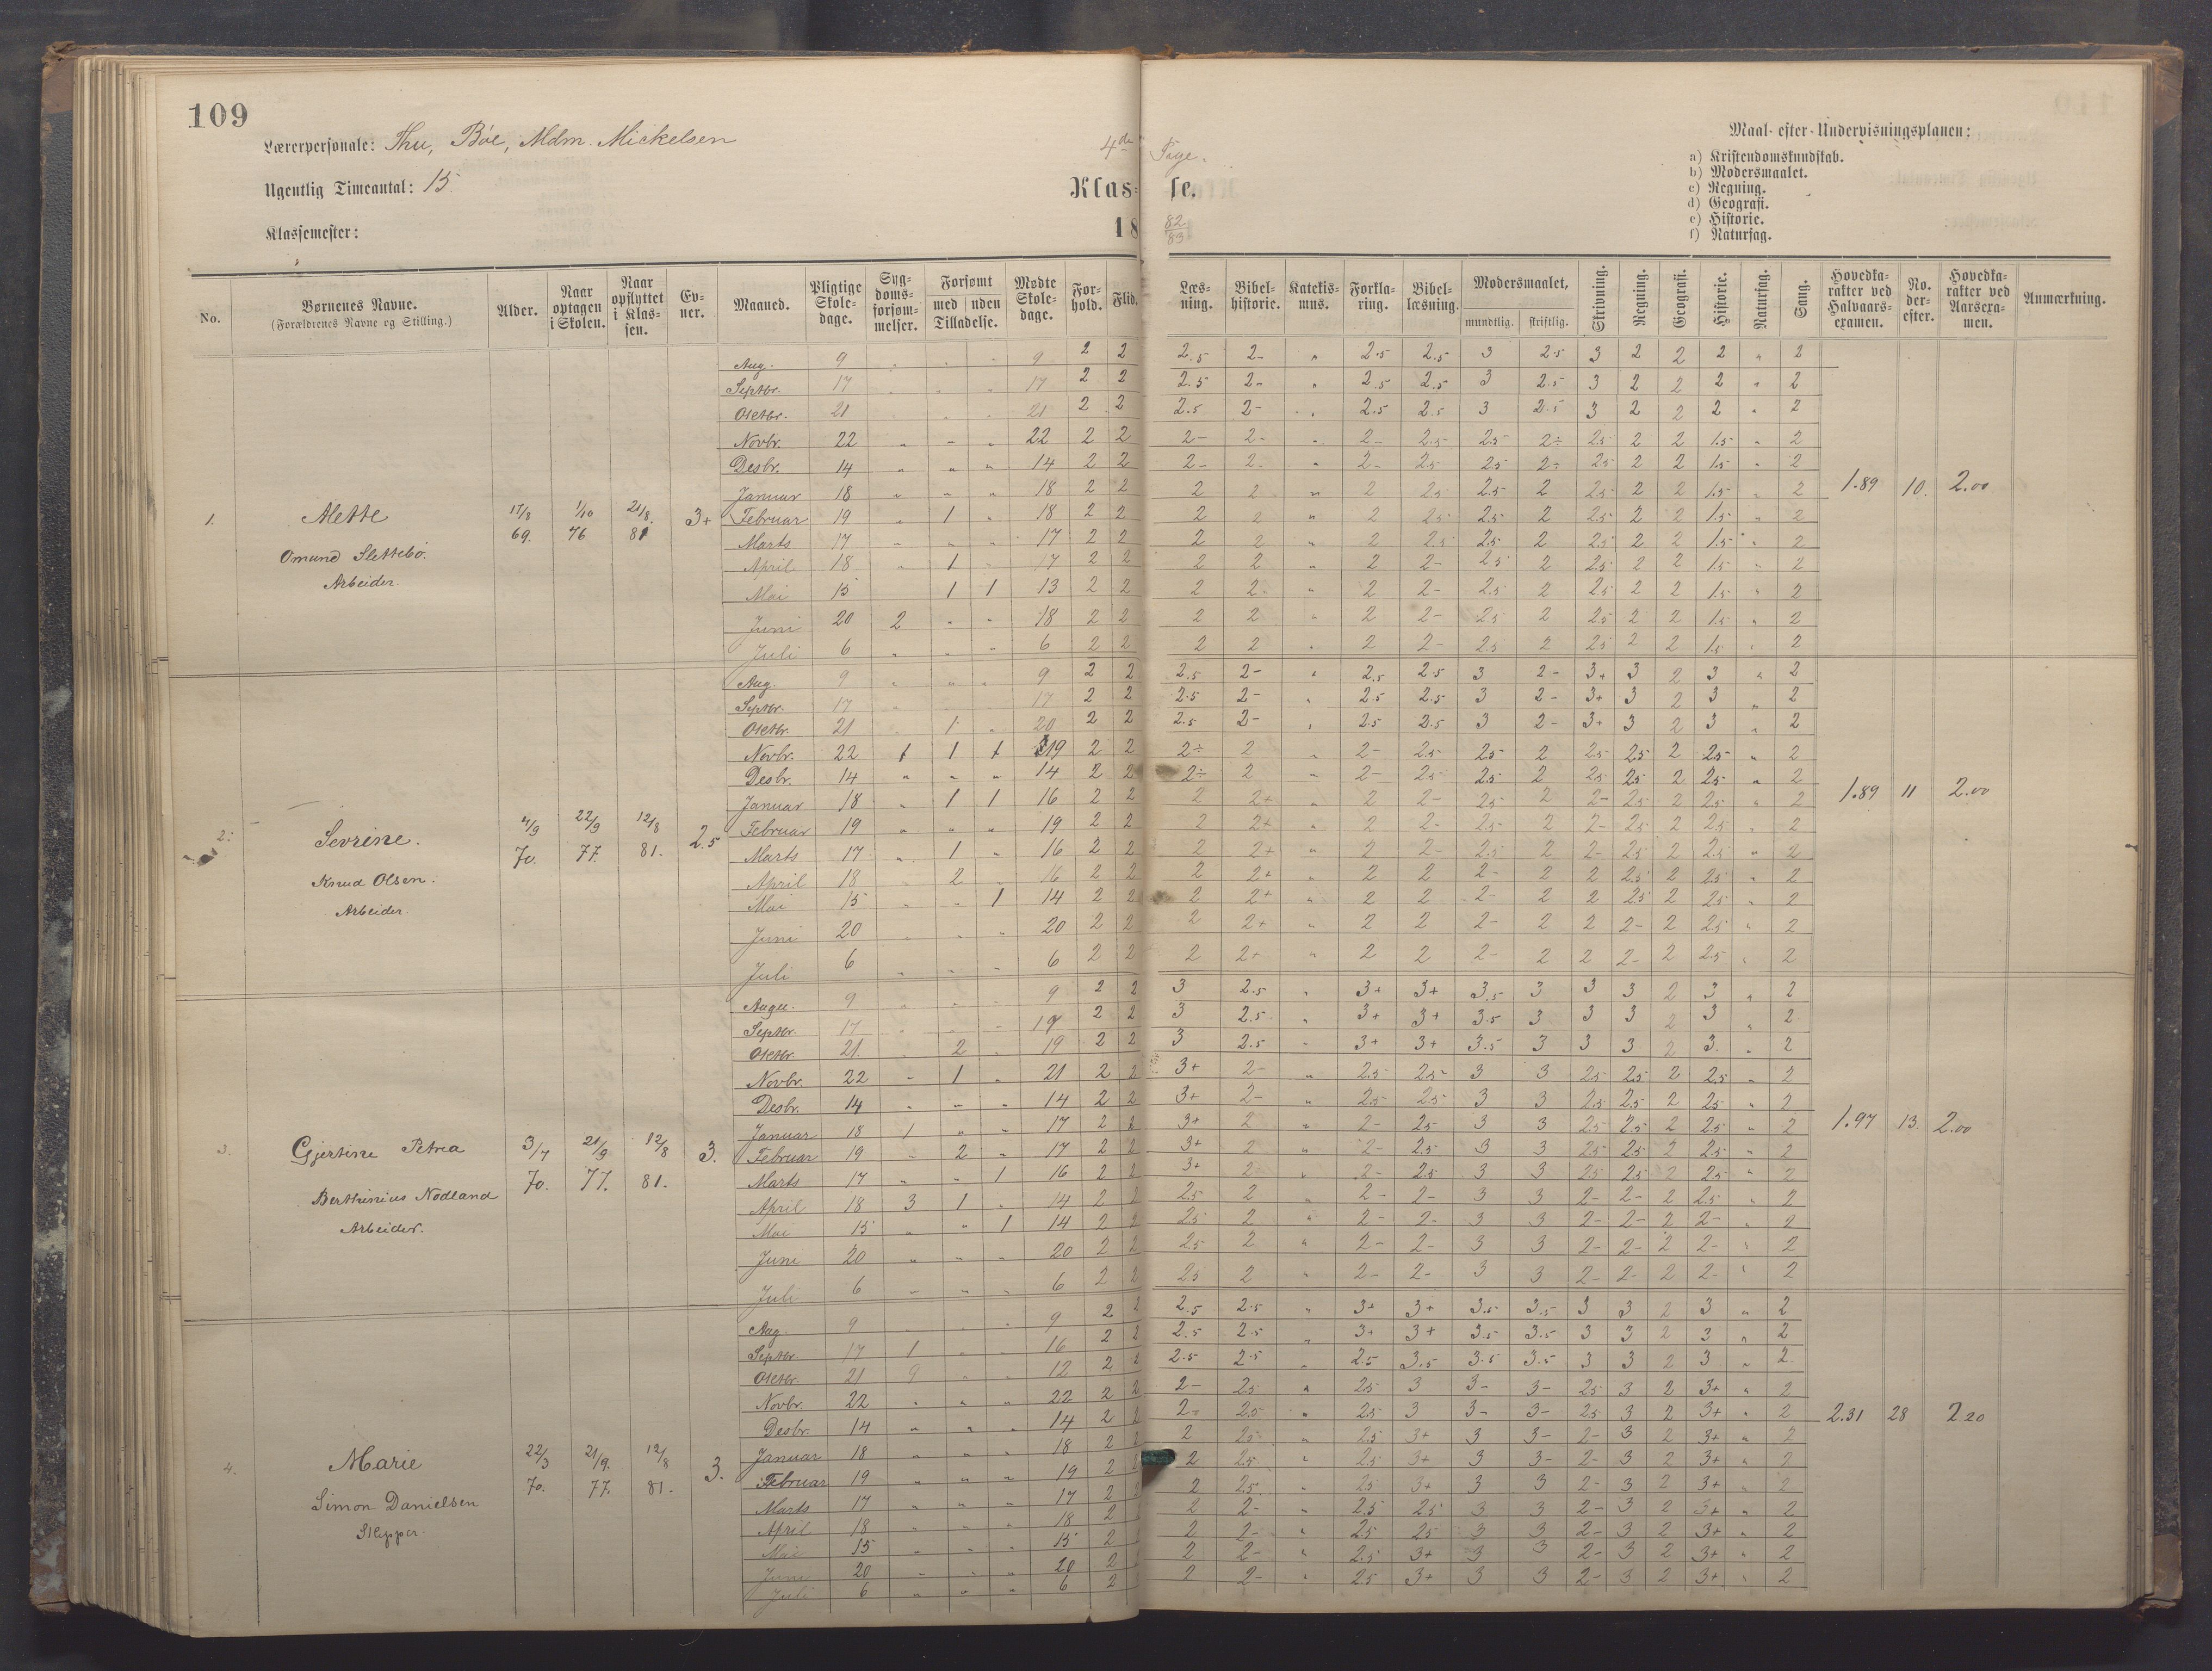 109
Lærerpersonale: Thu, Bøe, Mdm. Mickelsen
4de Pige.
Ugentlig Timeantal: 15.
Klas- se.
Klassemester:
18 82/83
Maal efter Undervisningsplanen:
a) Kristendomskundskab.
b) Modersmaalet.
c) Regning.
d) Geografi.
e) Historie.
f) Naturfag.
No. | Børnenes Navne. (Forældrenes Navne og Stilling.) | Alder. | Naar optagen i Skolen. | Naar opflyttet i Klassen. | Evner. | Maaned. | Pligtige Skoledage. | Sygdomsforsømmelser. | Forsømt med | uden Tilladelse. | Mødte Skoledage. | Forhold. | Flid. | Læsning. | Bibelhistorie. | Katekismus. | Forklaring. | Bibellæsning. | Modersmaalet, mundtlig. | skriftlig. | Skrivning. | Regning. | Geografi. | Historie. | Naturfag. | Sang. | Hovedkarakter ved Halvaarsexamen. | No. derefter. | Hovedkarakter ved Aarsexamen. | Anmærkning.
1. Alette
Omund Slettebø.
Arbeider.
17/8 69. 1/10 76 21/8. 81 3+
1.89 10. 2.00
Aug. 9 " " " 9 2 2 2.5 2- " 2.5 2.5 3 2.5 3 2 2 2 " 2
Septbr. 17 " " " 17 2 2 2.5 2- " 2.5 2.5 3 2.5 3 2 2 2 " 2
Octbr. 21 " " " 21 2 2 2.5 2- " 2.5 2.5 3 2.5 3 2 2 2 " 2
Novbr. 22 " " " 22 2 2 2- 2- " 2- 2.5 2.5 2÷ 2.5 2 2 1.5 " 2
Desbr. 14 " " " 14 2 2 2- 2- " 2- 2.5 2.5 2÷ 2.5 2 2 1.5 " 2
Januar 18 " " " 18 2 2 2 2 " 2 2.5 2.5 2 2.5 2 2 1.5 " 2
Februar 19 " 1 " 18 2 2 2 2 " 2 2.5 2.5 2 2.5 2 2 1.5 " 2
Marts 17 " " " 17 2 2 2 2 " 2 2.5 2.5 2 2.5 2 2 1.5 " 2
April 18 " 1 " 17 2 2 2 2 " 2 2- 2.5 2 2.5 2 2 1.5 " 2
Mai 15 1 1 13 2 2 2 2- " 2 2- 2.5 2 2.5 2 2 1.5 " 2
Juni 20 2 " " 18 2 2 2 2 " 2 2- 2.5 2 2.5 2 2 1.5 " 2
Juli 6 " " " 6 2 2 2 2 " 2 2- 2.5 2 2.5 2 2 1.5 " 2
2. Sevrine.
Knud Olsen.
Arbeider.
4/9 70. 22/9 77. 12/8 81. 2.5
1.89 11 2.00
Aug. 9 " " " 9 2 2 2.5 2- " 2.5 2.5 3 2- 3+ 3 2 3 " 2
Septbr. 17 " " " 17 2 2 2.5 2- " 2.5 2.5 3 2- 3+ 3 2 3 " 2
Octbr. 21 " 1 " 20 2 2 2.5 2- " 2.5 2.5 3 2- 3+ 3 2 3 " 2
Novbr. 22 1 1 1 19 2 2 2÷ 2 " 2- 2.5 2.5 2 2.5 2.5 2 2.5 " 2
Desbr. 14 " " " 14 2 2 2÷ 2 " 2- 2.5 2.5 2 2.5 2.5 2 2.5 " 2
Januar 18 " 1 1 16 2 2 2 2+ " 2 2- 2.5 2 2- 2.5 2 2.5 " 2
Februar 19 " " " 19 2 2 2 2+ " 2 2- 2.5 2 2- 2.5 2 2.5 " 2
Marts 17 " 1 " 16 2 2 2 2+ " 2 2- 2.5 2 2- 2.5 2 2.5 " 2
April 18 " 2 " 16 2 2 2 2+ " 2 2 2- 2 2 2.5 2 2.5 " 2
Mai 15 " " 1 14 2 2 2 2+ " 2 2 2- 2 2 2.5 2 2.5 " 2
Juni 20 " " " 20 2 2 2 2+ " 2 2 2- 2 2 2- 2 2.5 " 2
Juli 6 " " " 6 2 2 2 2+ " 2 2 2- 2 2 2- 2 2.5 " 2
3. Gjertine Petrea
Berthinius Nodland
Arbeider.
3/7 70. 21/9 77. 12/8 81. 3.
1.97 13. 2.00
Augu. 9 " " " 9 2 2 3 2.5 " 3+ 3+ 3.5 3 3 3 2 3 " 2
Septbr. 17 " " " 17 2 2 3 2.5 " 3+ 3+ 3.5 3 3 3 2 3 " 2
Octbr. 21. " 2 " 19 2 2 3 2.5 " 3+ 3+ 3.5 3 3 3 2 3. " 2
Novbr. 22 " 1 " 21 2 2 3+ 2- " 2.5 2.5 3 3 2.5 2.5 2 2.5 " 2
Desbr. 14 " " " 14 2 2 3+ 2- " 2.5 2.5 3 3 2.5 2.5 2 2.5 " 2
Januar 18 1 " " 17 2 2 3+ 2 " 2- 2.5 3 3 2.5 2.5 2 2.5 " 2
Februar 19 " 2 " 17 2 2 3+ 2 " 2- 2.5 3 3 2.5 2.5 2 2.5 " 2
Marts 17 " " 1 16 2 2 3+ 2 " 2- 2.5 3 3 2.5 2.5 2 2.5 " 2
April 18 3 1 " 14 2 2 2.5 2 " 2- 2- 3 3 2- 2- 2 2.5 " 2
Mai 15 " " 1 14 2 2 2.5 2 " 2- 2- 3 3 2- 2- 2 2- " 2
Juni 20 " " " 20 2 2 2.5 2 " 2- 2- 3 3 2- 2- 2 2- " 2
Juli 6 " " " 6 2 2 2.5 2 " 2- 2- 3 3 2- 2- 2 2- " 2
4. Marie
Simon Danielsen
Skipper.
22/3 70. 21/9. 77. 12/8 81. 3.
2.31 28 2 20
Aug. 9 " " " 9 2 2 2.5 2.5 " 3+ 3+ 3.5 3.5 3 3 2 3 " 2
Septbr. 17 1 " " 16 2 2 2.5 2.5 " 3+ 3+ 3.5 3.5 3 3 2 3 " 2
Octbr. 21 9 " " 12 2 2 2.5 2.5 " 2.5 3.5 3.5 3.5 3 3 2 3 " 2.
Novbr. 22 " " " 22 2 2 2- 2.5 " 2.5 3 3- 3- 2.5 3 2 3+ " 2
Desbr. 14 " " " 14 2 2 2- 2.5 " 2.5 3 3- 3- 2.5 3 2 3+ " 2
Januar 18 " " " 18 2 2 2 2.5 " 2.5 3+ 3 3- 2- 3 2 3+ " 2
Februar 19 " " " 19 2 2 2.5 " 2.5 3+ 3 3- 2- 3 2 3+ " 2
Marts 17 " " " 17 2 2 2 2.5 " 2.5 3+ 3 3 2- 3 2 3+ " 2
April 18 " " " 18 2 2 2- " 2.5 2.5 3 3 2- 3 2 3+ " 2
Mai 15 " " " 15 2 2 2- " 2.5 2.5 3 3 2- 3 2 3+ " 2
Juni 20 " " " 20 2 2 2- " 2.5 3+ 3 3 2- 3 2 3+ " 2
Juli 6 " " " 6 2 2 2- " 2.5 3+ 3 3 2- 3 2 3+ " 2